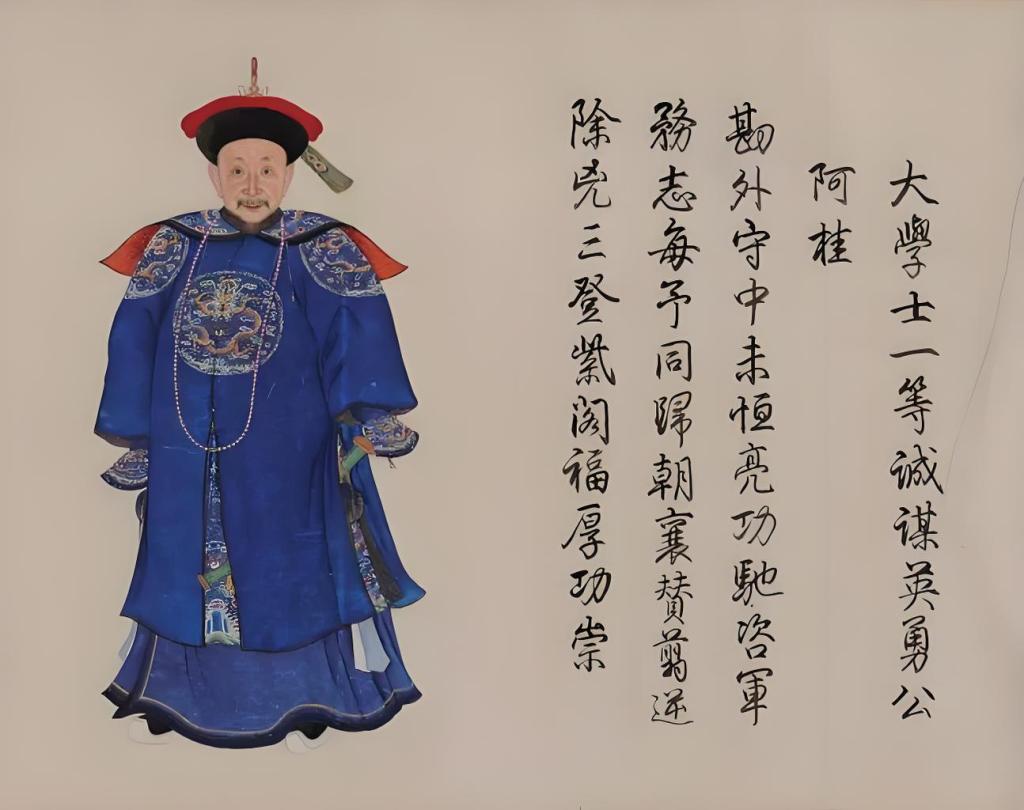 大學士一等誠謀英勇公
阿桂
勘外守中未恒亮功馳咨軍
務志每予同歸朝襄賛翦逆
除兇三登紫閣福厚功崇